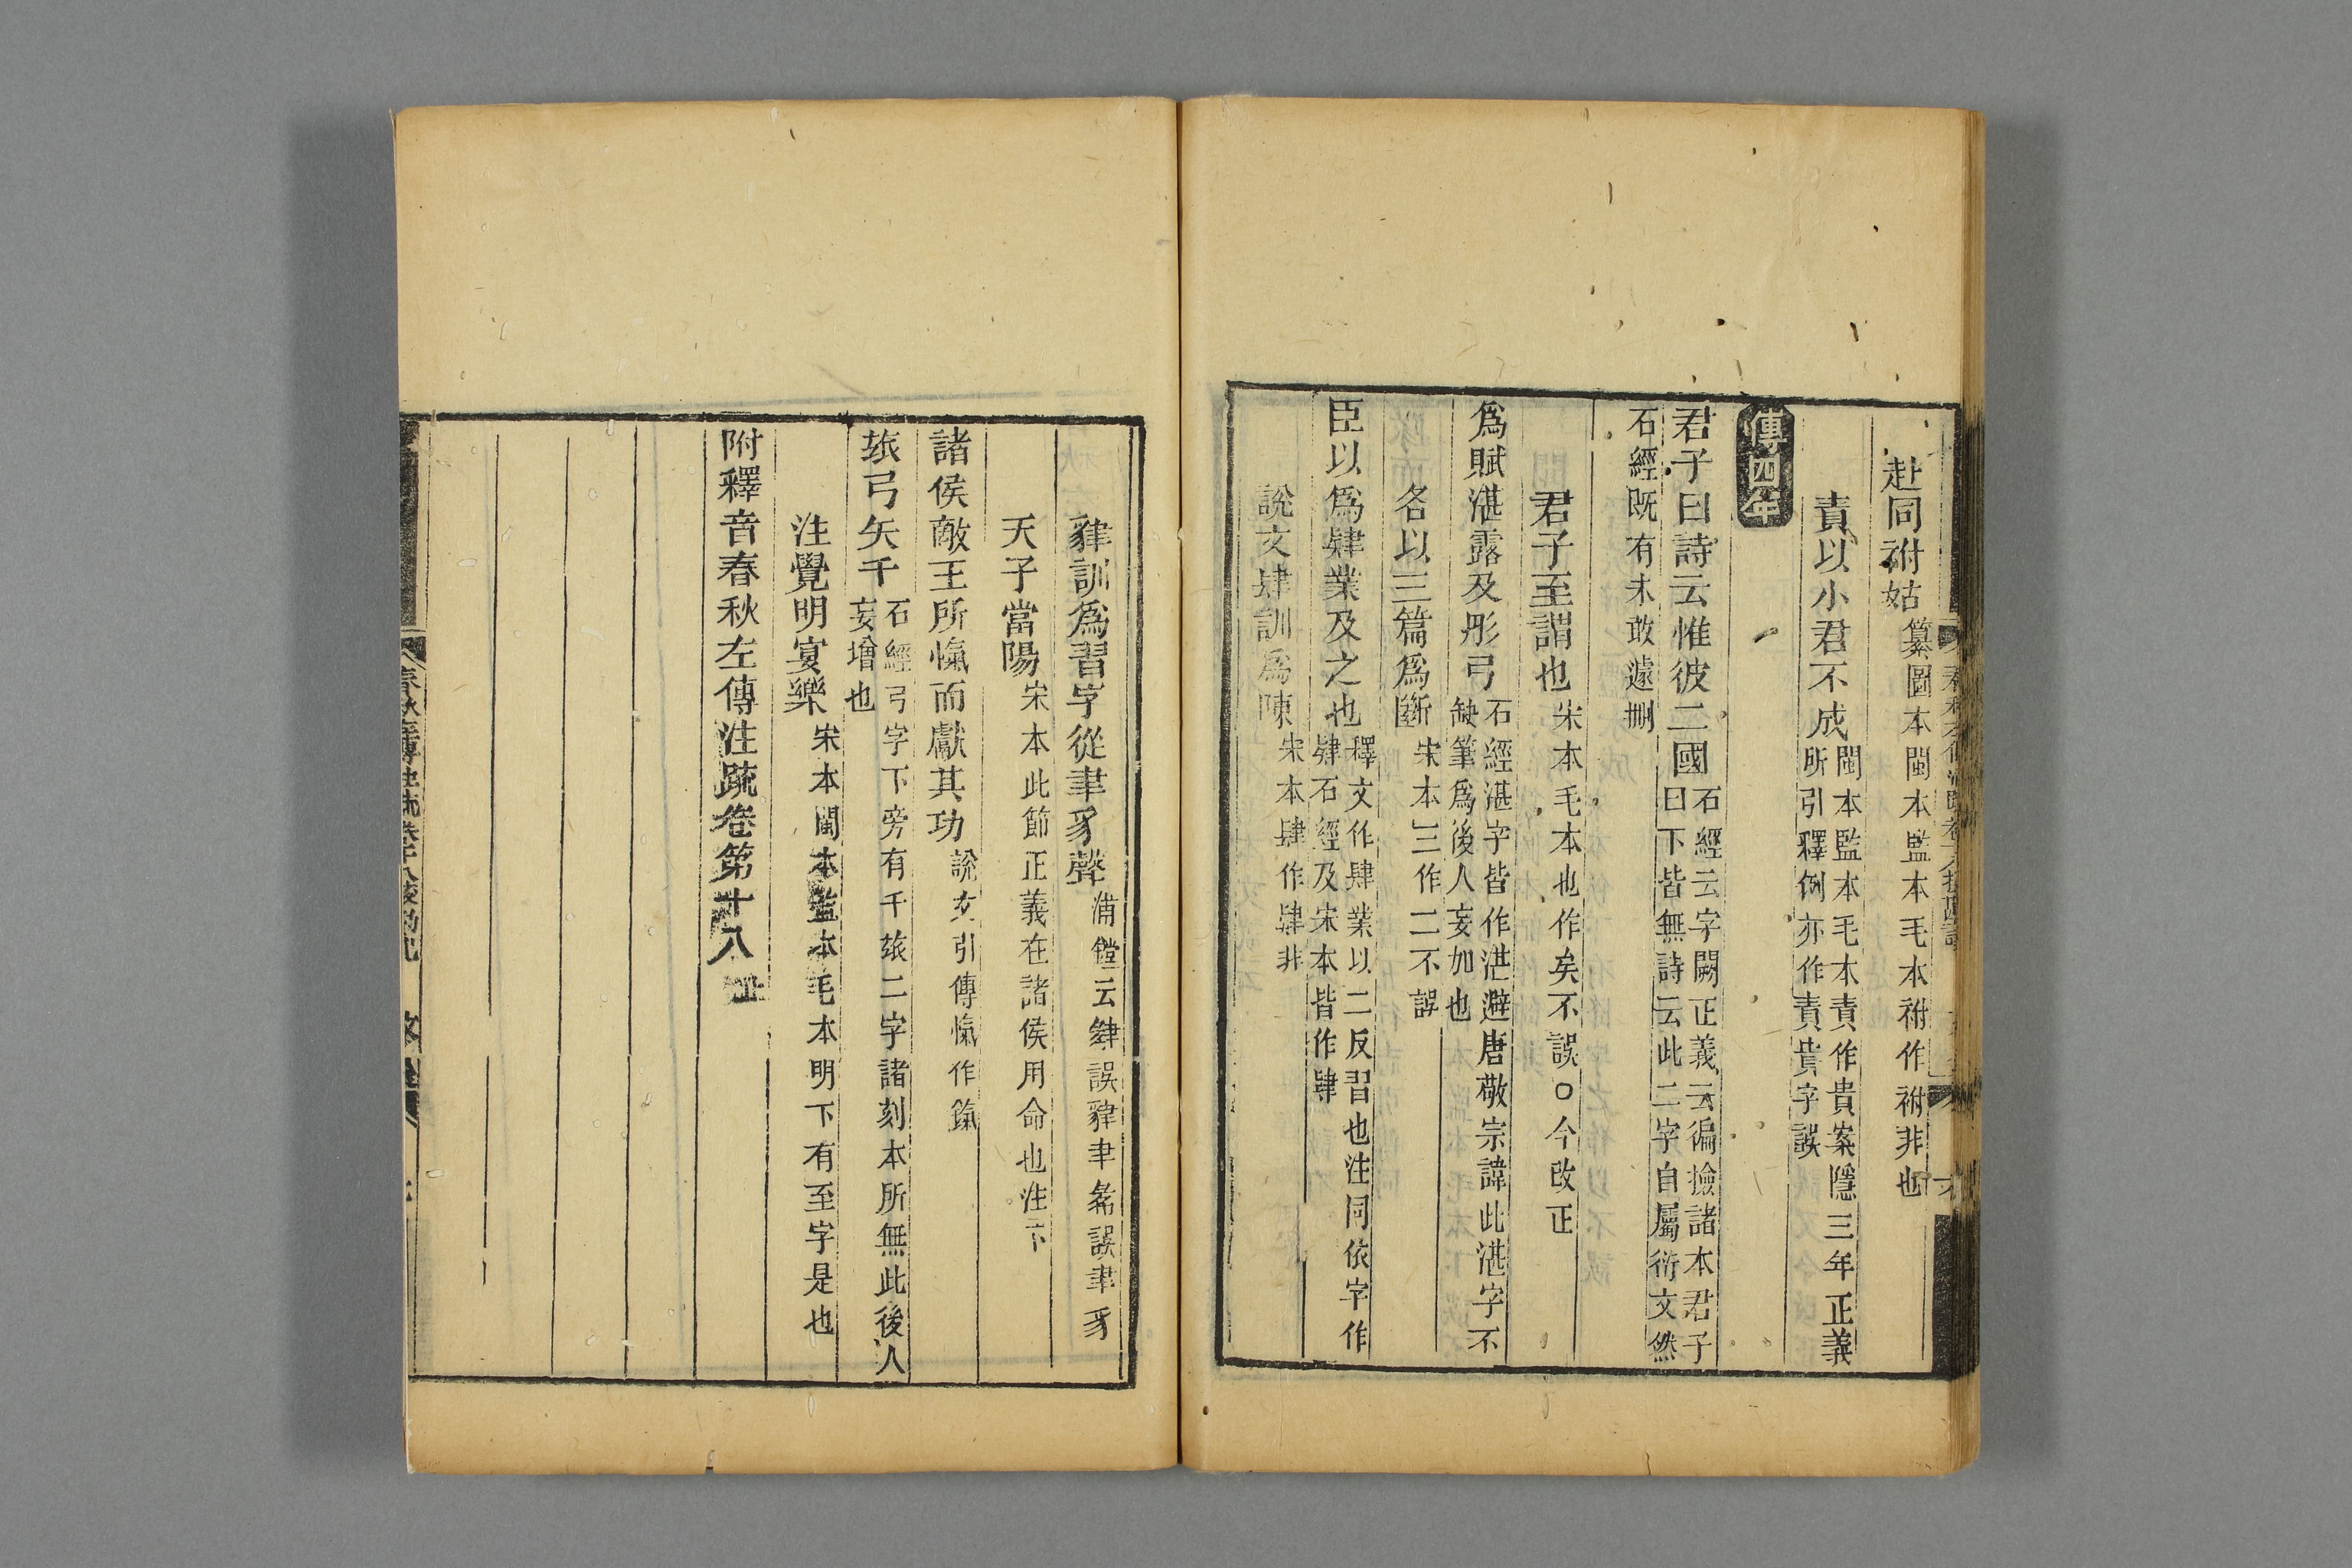 赴同祔姑纂圖本閩本監本毛本祔作袝非也
責以小君不成閩本監本毛本責作貴案隱三年正義
所引釋例亦作責貴字誤
傳四年
君子曰詩云惟彼二國石經云字闕正義云徧撿諸本君子
曰下皆無詩云此二字自屬衍文然
石經既有未敢遽刪
君子至謂也宋本毛本也作矣不誤○今改正
爲賦湛露及彤弓石經湛字皆作湛避唐敬宗諱此湛字不
缺筆爲後人妄加也
各以三篇爲斷宋本三作二不誤
臣以爲肄業及之也釋文作肄業以二反習也注同依字作
肄石經及宋本皆作肄
說文肆訓爲陳宋本肆作肄非
肄訓爲習字從聿㣇聲浦鏜云肄誤肄聿㣇誤聿㣇
天子當陽宋本此節正義在諸侯用命也注下
諸侯敵王所愾而獻其功說文引傳愾作鎎
玈弓矢千石經弓字下旁有千玈二字諸刻本所無此後人
妄增也
注覺明宴樂宋本閩本監本毛本明下有至字是也
附釋音春秋左傳注疏卷第十八止